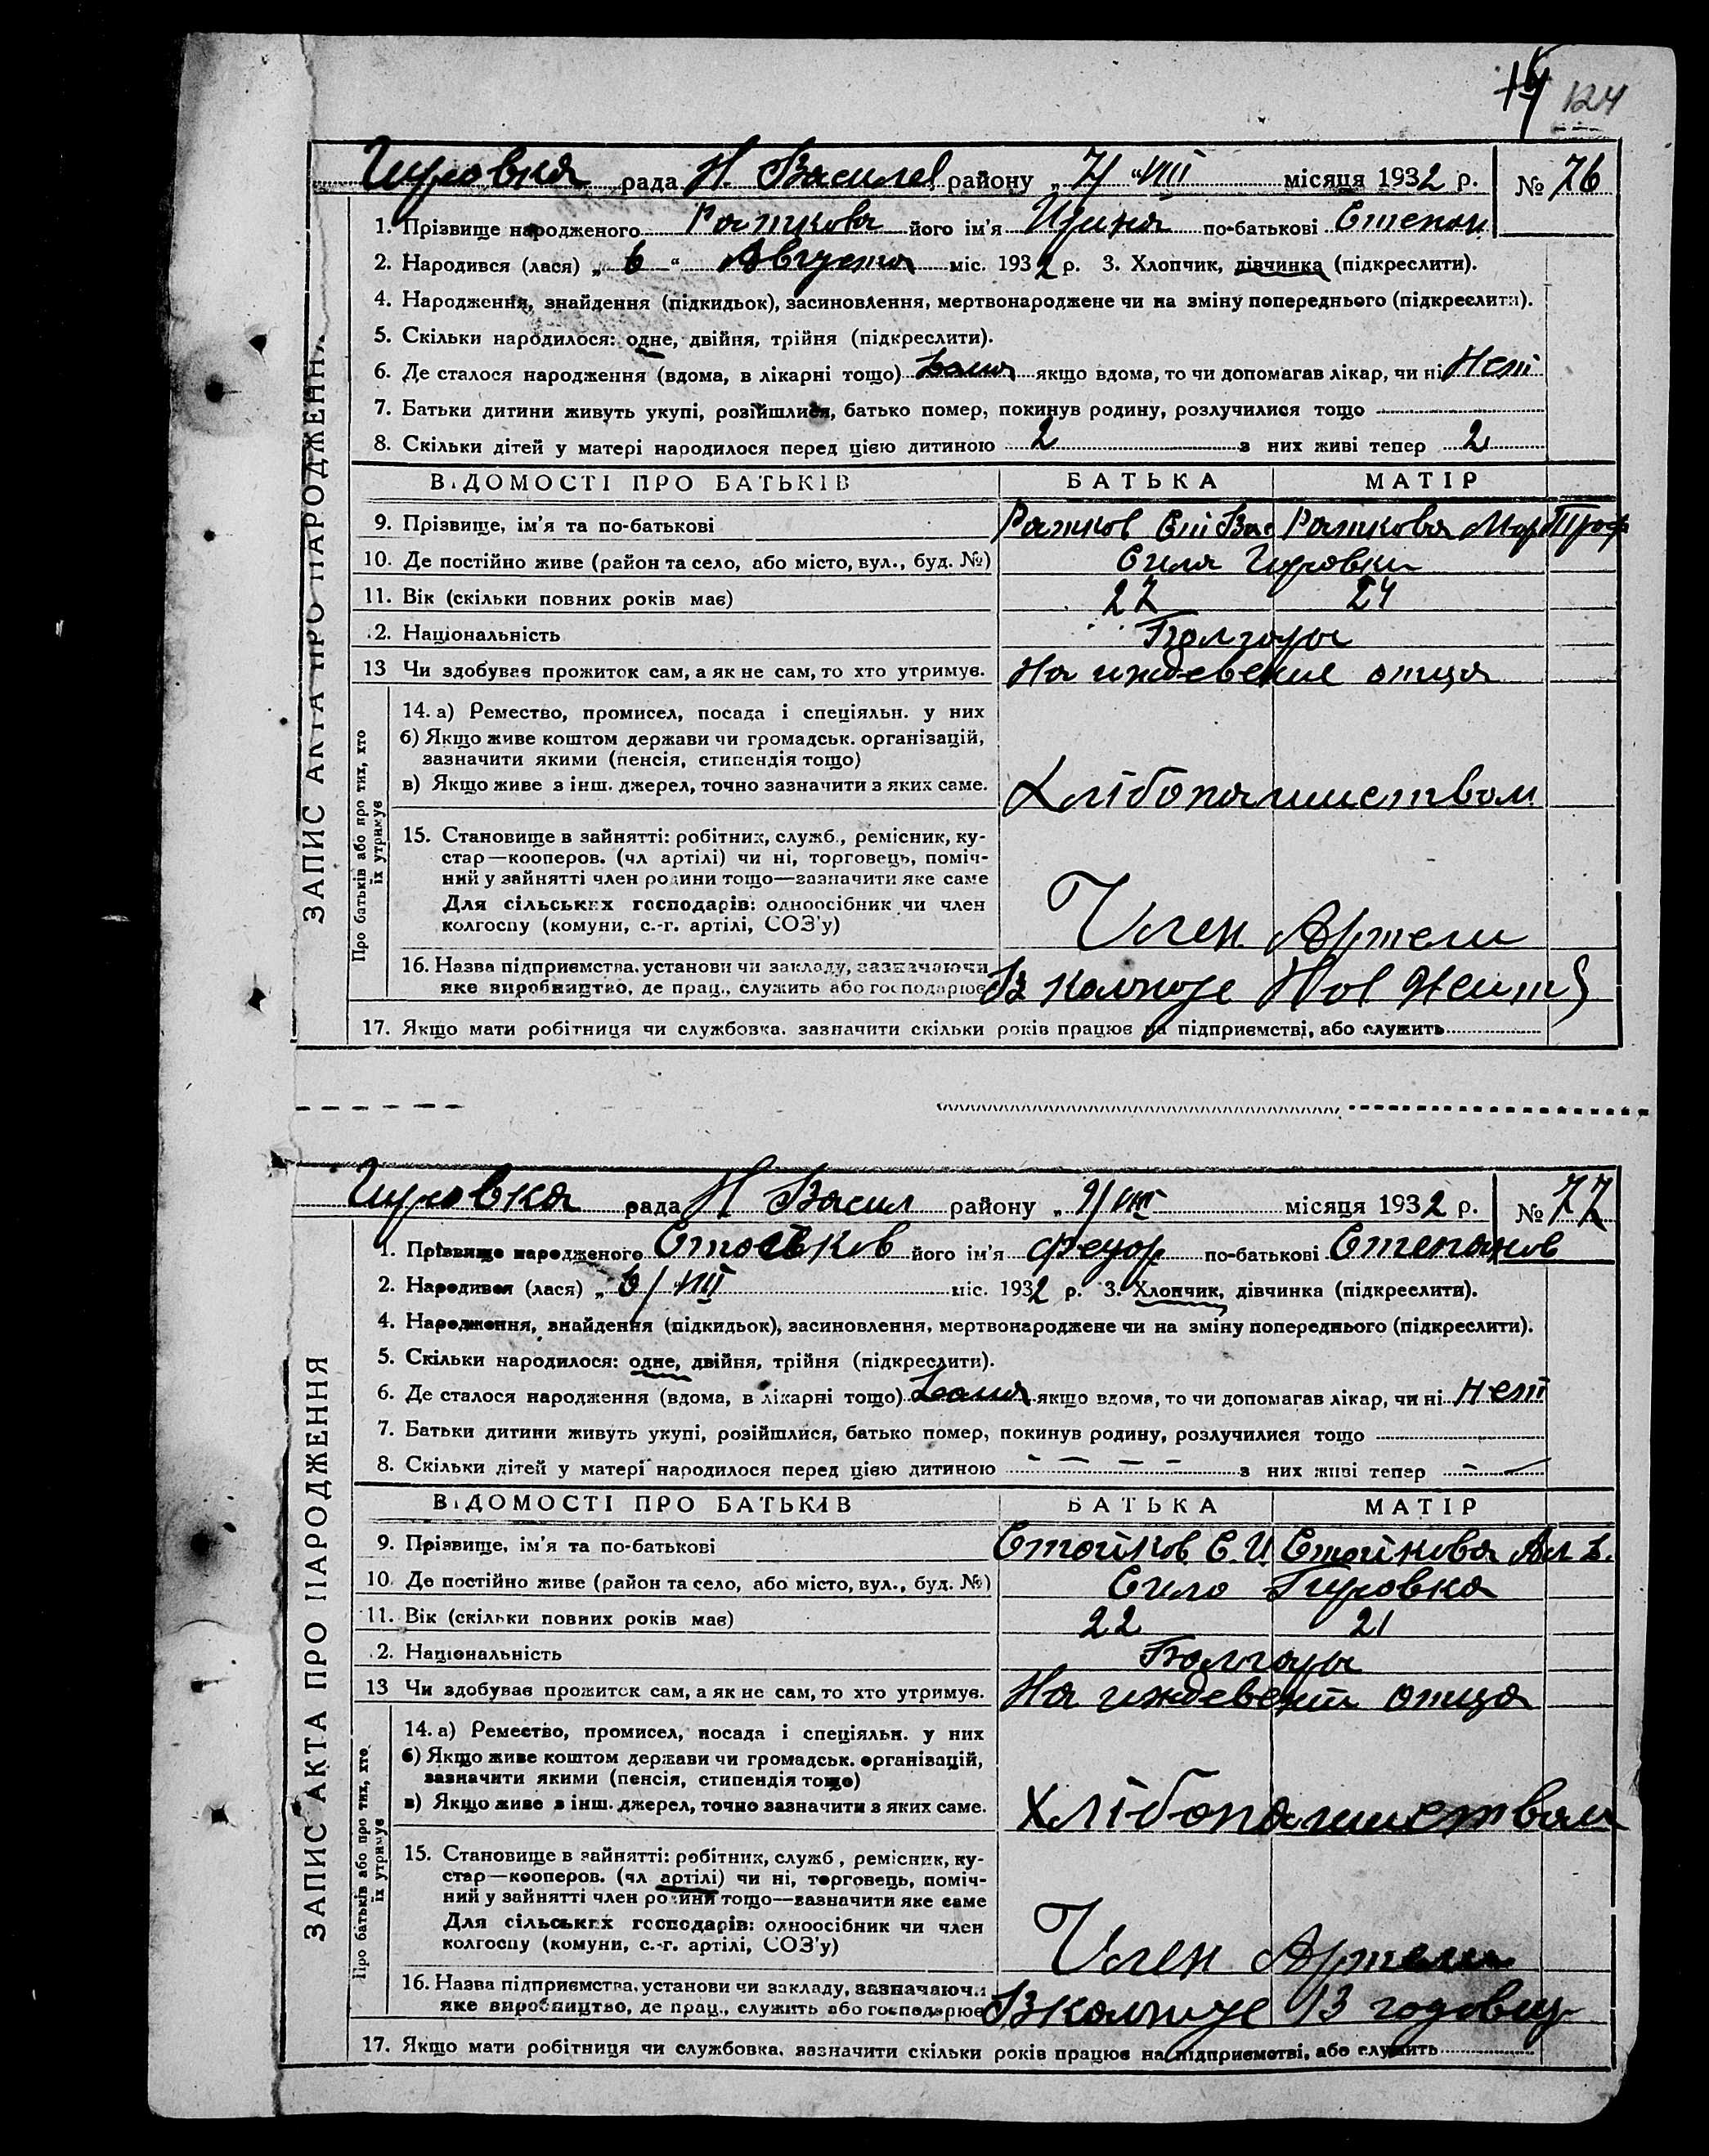 124
Гировка рада Н. Василев району „ 7/ “ VIII місяця 1932 р. № 76
1. Прізвище народженого Раткова його ім'я Ирина по-батькові Степан
2. Народився (лася) „ 6 “ Августа міс. 1932 р. 3. Хлопчик, дівчинка (підкреслити).
4. Народження, знайдення (підкидьок), засиновлення, мертвонароджене чи на зміну попереднього (підкреслити).
5. Скільки народилося: одне, двійня, трійня (підкреслити).
6. Де сталося народження (вдома, в лікарні тощо) Дома якщо вдома, то чи допомагав лікар, чи ні Нет
7. Батьки дитини живуть укупі, розійшлися, батько помер, покинув родину, розлучилися тощо
8. Скільки дітей у матері народилося перед цією дитиною 2 з них живі тепер 2
ВІДОМОСТІ ПРО БАТЬКІВ БАТЬКА МАТІР
9. Прізвище, ім'я та по-батькові Ратков Ст Вас Раткова Мар Проф
10. Де постійно живе (район та село, або місто, вул., буд. №) Села Гировки
11. Вік (скільки повних років має) 27 24
12. Національність Болгары
13 Чи здобував прожиток сам, а як не сам, то хто утримує. На иждевение отца
14. а) Ремество, промисел, посада і спеціяльн. у них
б) Якщо живе коштом держави чи громадськ. організацій,
зазначити якими (пенсія, стипендія тощо)
в) Якщо живе з інш. джерел, точно зазначити з яких саме. Хлібопашеством
15. Становище в зайнятті: робітник, служб., ремісник, ку-
стар—кооперов. (чл артілі) чи ні, торговець, поміч-
ний у зайнятті член родини тощо—зазначити яке саме
Для сільських господарів: одноосібник чи член
колгоспу (комуни, с.-г. артілі, СОЗ'у) Член Артели
16. Назва підприємства, установи чи закладу, зазначаючи
яке виробництво, де прац., служить або господарює В колхозе Нов
17. Якщо мати робітниця чи службовка, зазначити скільки років працює на підприємстві, або служить
ЗАПИС АКТА ПРО НАРОДЖЕННЯ
Про батьків або про тих, хто
їх утримує
Гировка рада Н Васил району „ 9/ VIII місяця 1932 р. № 77
1. Прізвище народженого Стойков його ім'я Федор по-батькові Степанов
2. Народився (лася) „ 6/ “ VIII міс. 1932 р. 3. Хлопчик, дівчинка (підкреслити).
4. Народження, знайдення (підкидьок), засиновлення, мертвонароджене чи на зміну попереднього (підкреслити).
5. Скільки народилося: одне, двійня, трійня (підкреслити).
6. Де сталося народження (вдома, в лікарні тощо) Дома якщо вдома, то чи допомагав лікар, чи ні Нет
7. Батьки дитини живуть укупі, розійшлися, батько помер, покинув родину, розлучилися тощо
8. Скільки дітей у матері народилося перед цією дитиною — — — — — з них живі тепер — —
ВІДОМОСТІ ПРО БАТЬКІВ БАТЬКА МАТІР
9. Прізвище, ім'я та по-батькові Стойков С. И. Стойкова Ал Д.
10. Де постійно живе (район та село, або місто, вул., буд. №) Сило Гировка
11. Вік (скільки повних років має) 22 21
12. Національність Болгары
13 Чи здобував прожиток сам, а як не сам, то хто утримує. На иждевении отца
14. а) Ремество, промисел, посада і спеціяльн. у них
б) Якщо живе коштом держави чи громадськ. організацій,
зазначити якими (пенсія, стипендія тощо)
в) Якщо живе з інш. джерел, точно зазначити з яких саме. Хлібопашеством
15. Становище в зайнятті: робітник, служб., ремісник, ку-
стар—кооперов. (чл артілі) чи ні, торговець, поміч-
ний у зайнятті член родини тощо—зазначити яке саме
Для сільських господарів: одноосібник чи член
колгоспу (комуни, с.-г. артілі, СОЗ'у) Член Артели
16. Назва підприємства, установи чи закладу, зазначаючи
яке виробництво, де прац., служить або господарює В колхозе 13 годовщ
17. Якщо мати робітниця чи службовка, зазначити скільки років працює на підприємстві, або служить
ЗАПИС АКТА ПРО НАРОДЖЕННЯ
Про батьків або про тих, хто
їх утримує